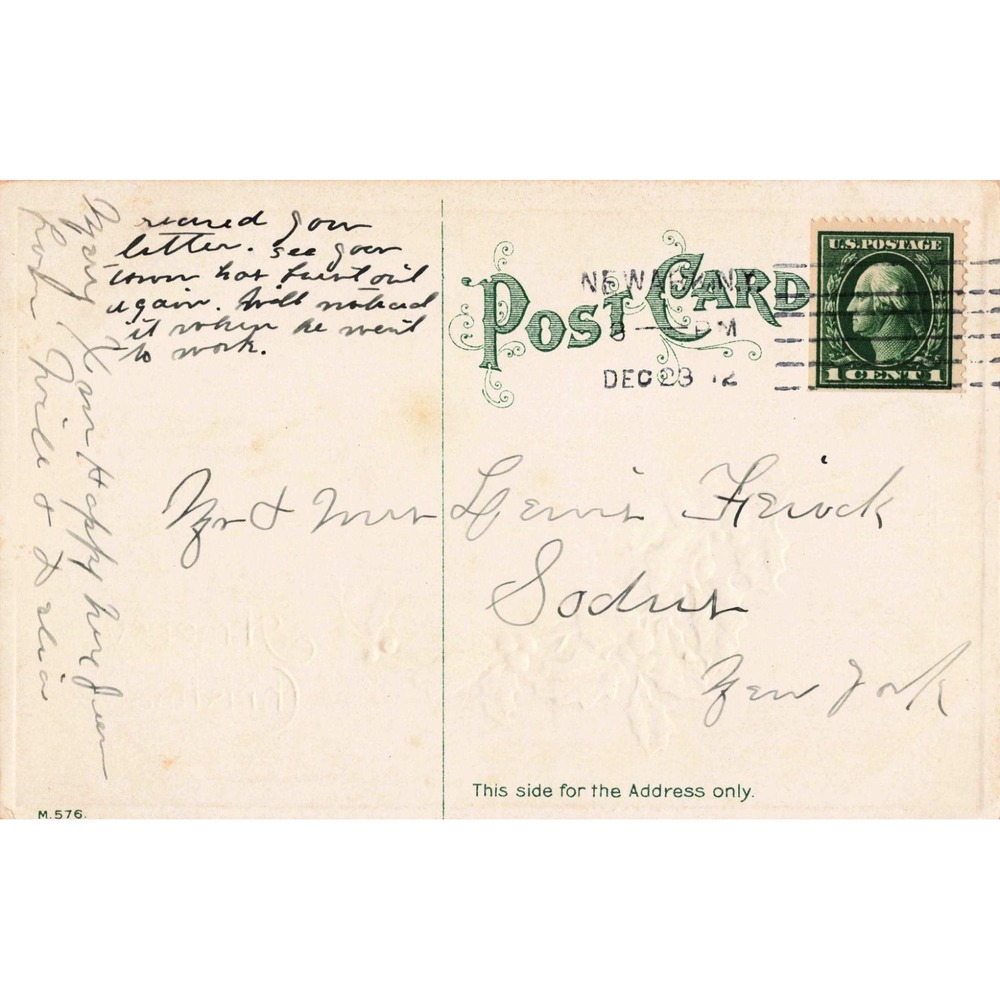 recived your
letter. see your
town has burnt out
again. Will noticed
it when he went
to work.
Mery Xms Happy New Year
from Will &
POST CARD
NEWARK N.Y.
8 PM
DEC 23 12
U.S. POSTAGE
1 CENT 1
Mr & Mrs Lewis
Sodus
New York
This side for the Address only.
M. 576.